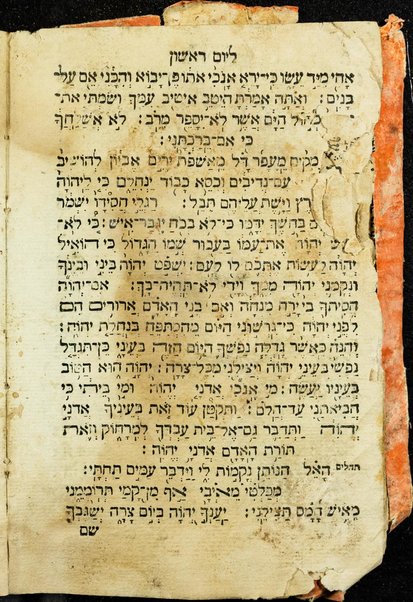 ליום ראשון
אחי מיד עשו כי־ירא אנכי אתו פן־יבוא והכני אם על־
בנים: ואתה אמרת היטב איטיב עמך ושמתי את־
הים אשר לא־יספר מרב: לא אשלחך
כי אם־ברכתני:
מקים מעפר דל מאשפת ירים אביון להושיב
עם־נדיבים וכסא כבוד ינחלם כי ליהוה
וישת עליהם תבל: רגלי חסידו ישמר
בחשך ידמו כי־לא בכח יגבר־איש: כי לא־
יהוה את־עמו בעבור שמו הגדול כי הואיל
יהוה לעשות אתכם לו לעם: ישפט יהוה ביני ובינך
ונקמני יהוה ממך וידי לא־תהיה־בך: אם־יהוה
הסיתך בי ירח מנחה ואם בני האדם ארורים הם
לפני יהוה כי־גרשוני היום מהסתפח בנחלת יהוה:
והנה כאשר גדלה נפשך היום הזה בעיני כן תגדל
נפשי בעיני יהוה ויצילני מכל־צרה: יהוה הוא הטוב
בעיניו יעשה: מי אנכי אדני יהוה ומי ביתי כי
הביאתני עד־הלם: ותקטן עוד זאת בעיניך אדני
יהוה ותדבר גם אל־בית עבדך למרחוק וזאת
תורת האדם אדני יהוה:
תהלים האל הנותן נקמות לי וידבר עמים תחתי:
מפלטי מאיבי אף מן־קמי תרוממני
מאיש חמס תצילני: יענך יהוה ביום צרה ישגבך
שם